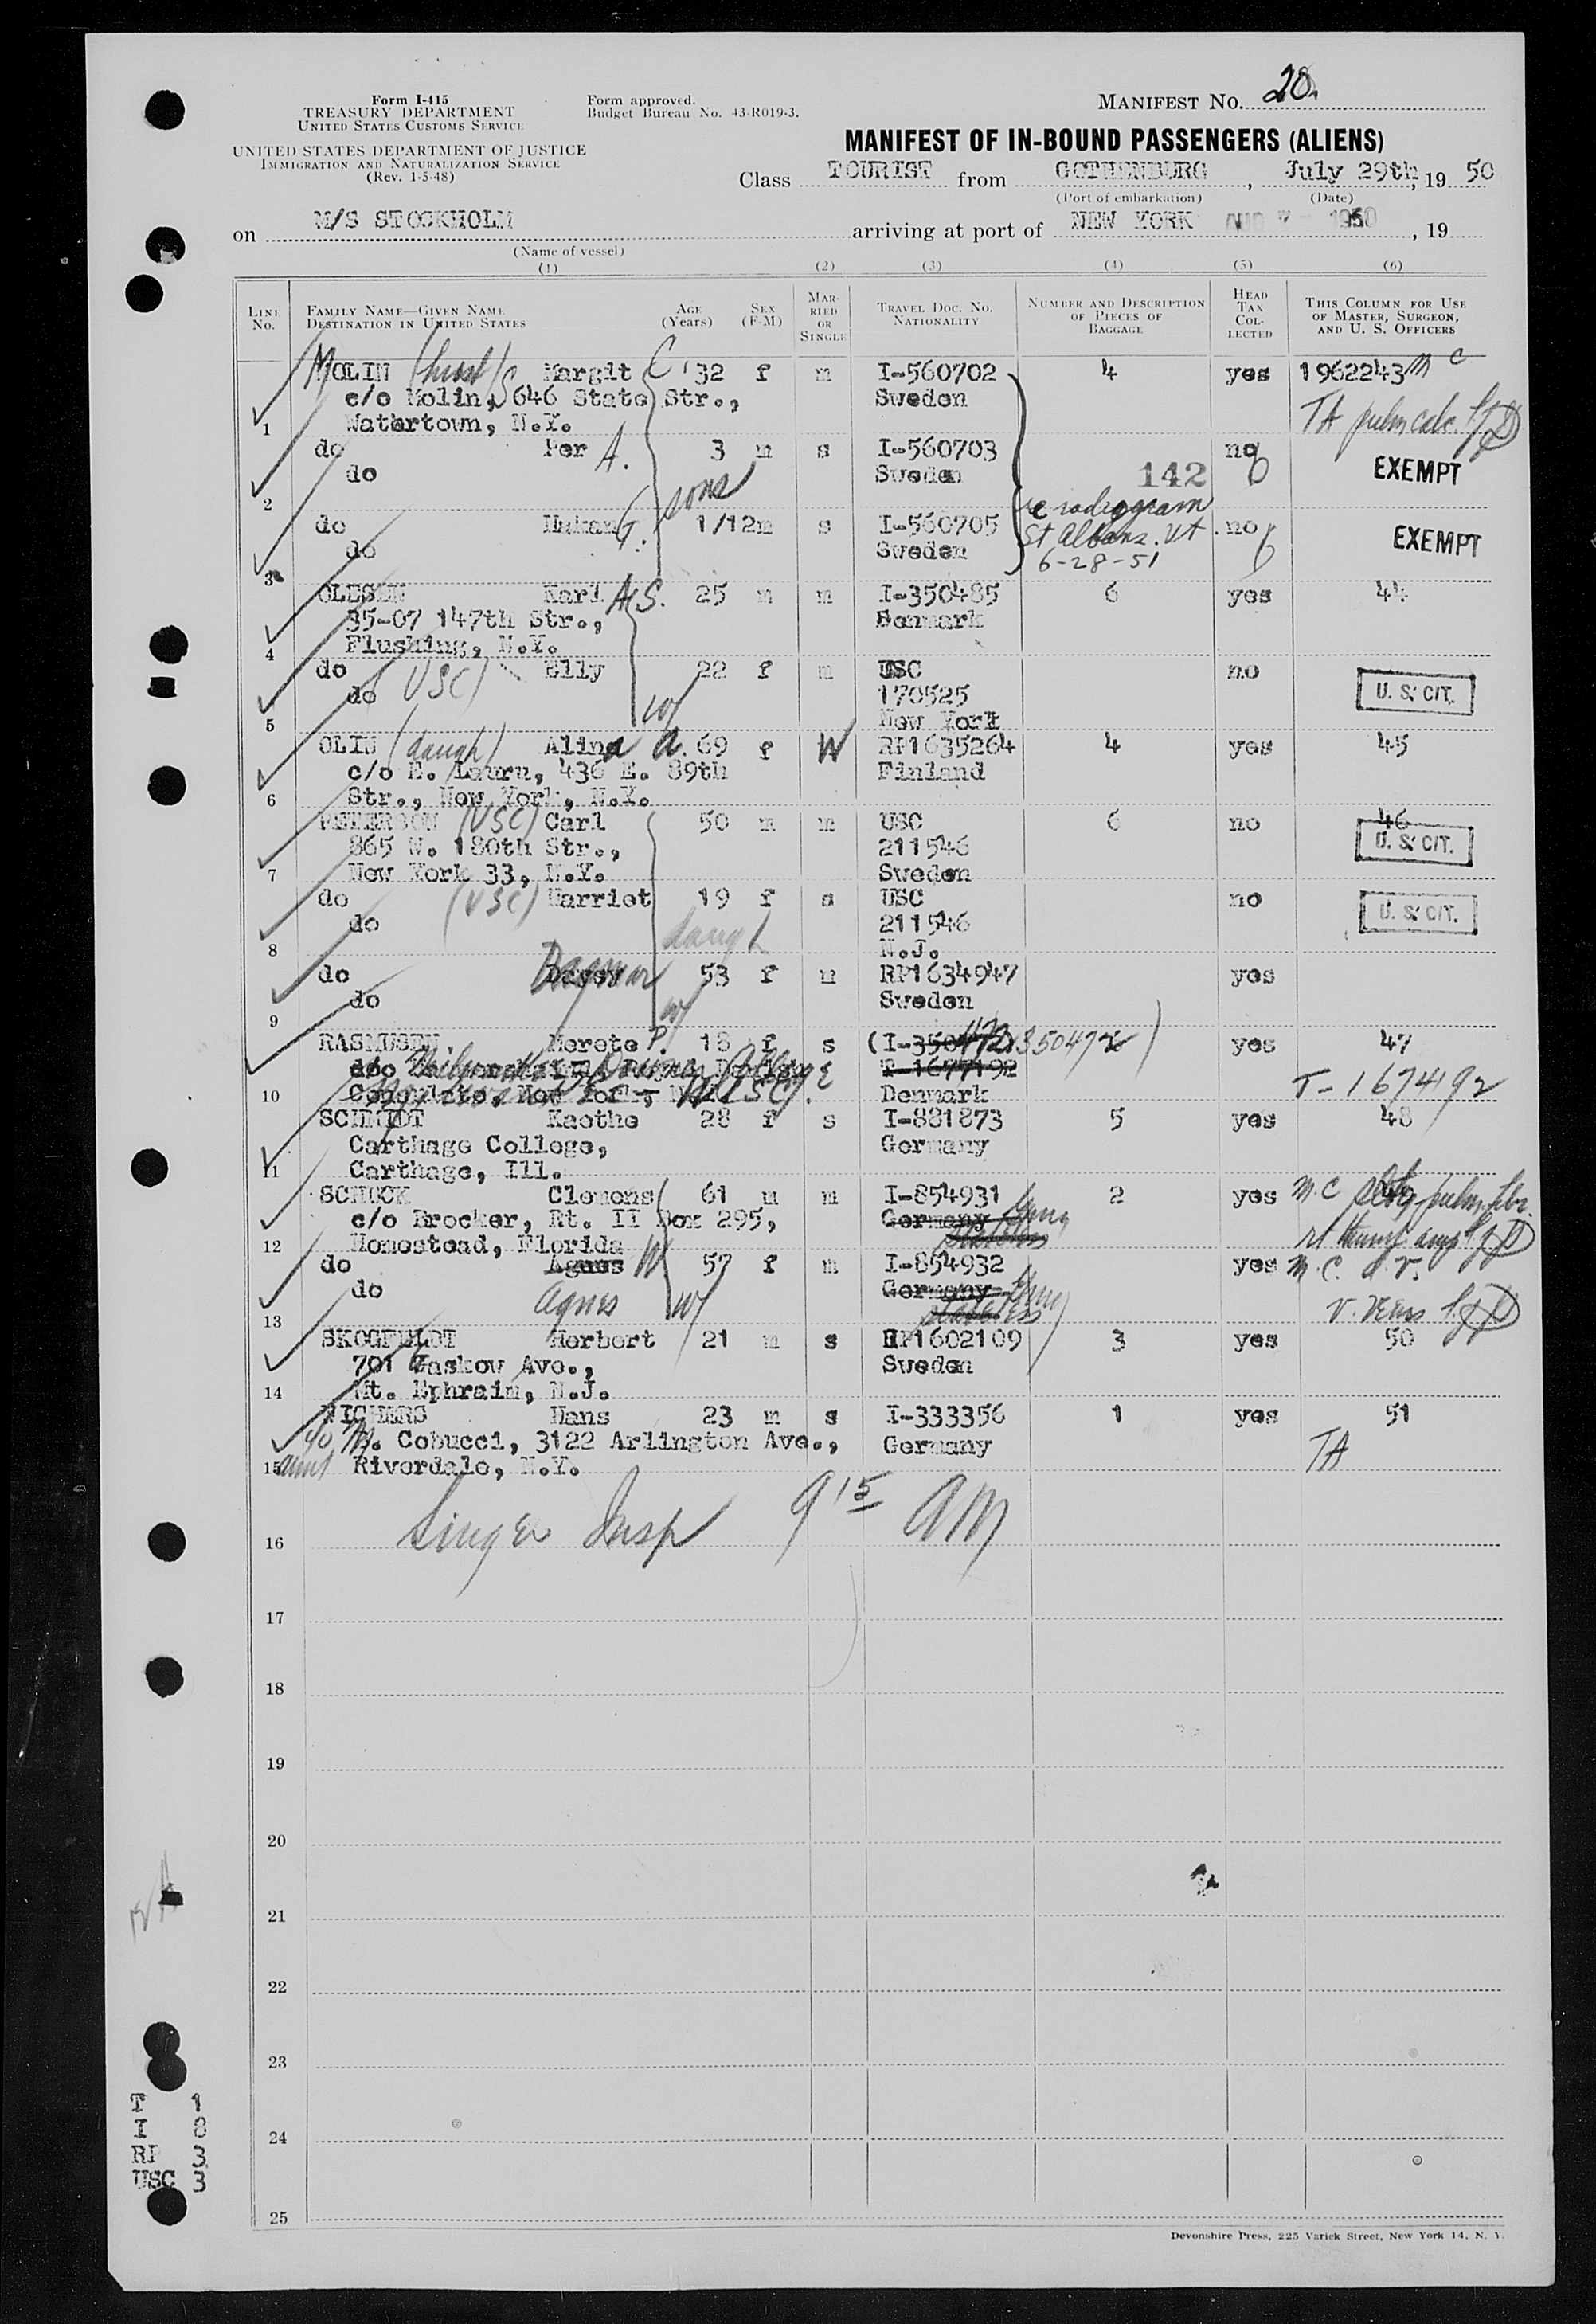 Form I-415
TREASURY DEPARTMENT
UNITED STATES CUSTOMS SERVICE
UNITED STATES DEPARTMENT OF JUSTICE
IMMIGRATION AND NATURALIZATION SERVICE
(Rev. 1-5-48)
Form approved.
Budget Bureau No. 43-R019-3.
MANIFEST NO. 20
MANIFEST OF IN-BOUND PASSENGERS (ALIENS)
Class TOURIST from GOTHENBURG, July 29th, 19 50
(Port of embarkation) (Date)
on M/S STOCKHOLM arriving at port of NEW YORK AUG 7 - 1950, 19
(Name of vessel)
(1) (2) (3) (4) (5) (6)
LINE NO. FAMILY NAME—GIVEN NAME DESTINATION IN UNITED STATES AGE (Years) SEX (F-M) MARRIED OR SINGLE TRAVEL DOC. NO. NATIONALITY NUMBER AND DESCRIPTION OF PIECES OF BAGGAGE HEAD TAX COLLECTED THIS COLUMN FOR USE OF MASTER, SURGEON, AND U. S. OFFICERS
MOLIN (husb) Margit C 32 f m I-560702 4 yes 1962243 m c
c/o Molin, 646 State Str., Sweden
1 Watertown, N.Y. TA pulm calc.
do Per A. 3 m s I-560703 no
do Sweden 142 EXEMPT
2 sons
do Hakan G. 1/12 m s I-560705 no
do Sweden EXEMPT
radiogram
St Albans. Vt
6-28-51
3
OLESEN Karl A S. 25 m m I-350485 6 yes 44
35-07 147th Str., Denmark
4 Flushing, N.Y.
do USC) Elly 22 f m USC no
do 170525 U. S. CIT.
5 w/ New York
OLIN (daugh) Alina A. 69 f W RP1635264 4 yes 45
c/o E. Lauru, 436 E. 89th Finland
6 Str., New York, N.Y.
PETERSON (USC) Carl 50 m m USC 6 no 46
865 W. 180th Str., 211546 U. S. CIT.
7 New York 33, N.Y. Sweden
do (USC) Harriet 19 f s USC no
do 211546 U. S. CIT.
8 daugh N.J.
do Dagmar 53 f m RP1634947 yes
do w/ Sweden
9
RASMUSEN Merete P. 18 f s (I-350472 350472) yes 47
T-1677192
10 Consulate, New York, Denmark T-1674192
SCHMIDT Kaethe 28 f s I-881873 5 yes 48
Carthage College, Germany
11 Carthage, Ill.
SCHOCK Clemens 61 m m I-854931 2 yes m.c
c/o Brocker, Rt. II Box 295, Germany stateless
12 Homestead, Florida
do Agnes 57 f m I-854932 yes m.c.
do Agnes w/ Germany stateless
13 v. veins
SKOGFELDT Herbert 21 m s RP1602109 3 yes 50
701 Gaskow Ave., Sweden
14 Mt. Ephraim, N.J.
WICHERS Hans 23 m s I-333356 1 yes 51
c/o M. Cobucci, 3122 Arlington Ave., Germany
15 aunt Riverdale, N.Y. TA
16 Singer Insp 9 15 AM
17
18
19
20
21
22
23
24
25
T 1
I 8
RP 3
USC 3
Devonshire Press, 225 Varick Street, New York 14, N. Y.